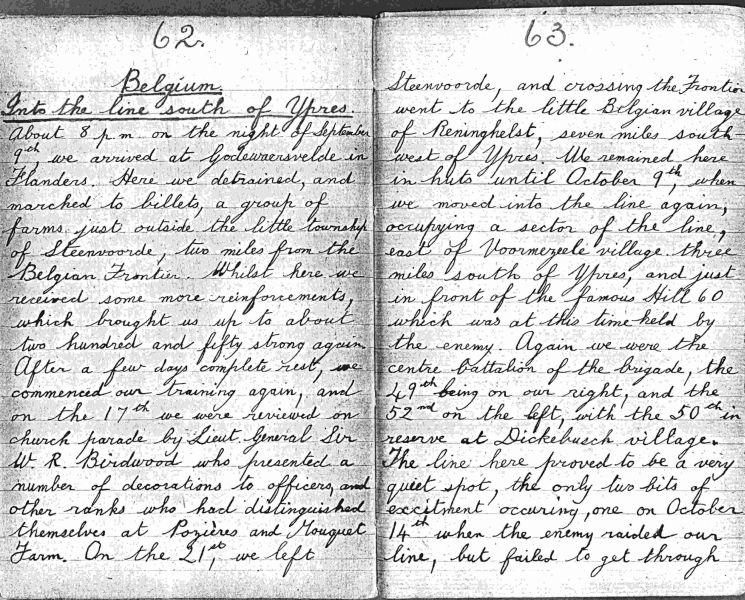 62.
Belgium.
Into the line south of Ypres.
About 8 p.m on the night of September
9th, we arrived at Godewaersvelde in
Flanders. Here we detrained, and
marched to billets, a group of
farms just outside the little township
of Steenvoorde, two miles from the
Belgian Frontier. Whilst here we
received some more reinforcements,
which brought us up to about
two hundred and fifty strong again.
After a few days complete rest, we
commenced our training again, and
on the 17th we were reviewed on
church parade by Lieut. General Sir
W. R. Birdwood who presented a
number of decorations to officers, and
other ranks who had distinguished
themselves at Pozières and Mouquet
Farm. On the 21st, we left
63.
Steenvoorde, and crossing the Frontier
went to the little Belgian village
of Reninghelst, seven miles south
west of Ypres. We remained here
in huts until October 9th, when
we moved into the line again,
occupying a sector of the line,
east of Voormezeele village three
miles south of Ypres, and just
in front of the famous Hill 60
which was at this time held by
the enemy. Again we were the
centre battalion of the brigade, the
49th being on our right, and the
52nd on the left, with the 50th in
reserve at Dickebusch village.
The line here proved to be a very
quiet spot, the only two bits of
excitment occuring, one on October
14th when the enemy raided our
line, but failed to get through